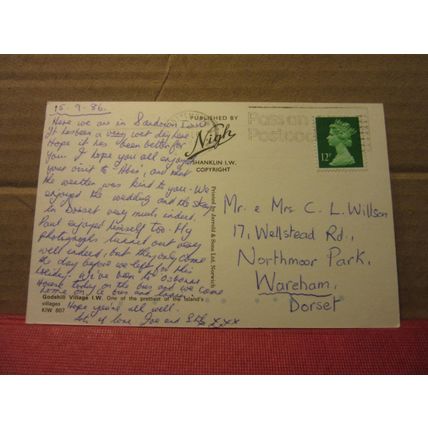 15-9-86.
Here we are in Sandown
It has been a very wet day here.
Hope it has been better for
you. I hope you all enjoyed
your visit to and that
the weather was kind to you. We
enjoyed the wedding and the stay
in Dorset very much indeed,
Paul enjoyed himself too. My
photographs turned out very
well indeed, but they only came
the day before we left for this
holiday. We've been to Osborne
House today on the bus and we came
home on
Hope you're all well.
lots of love and XXX
Godshill Village I.W. One of the prettiest of the Island's
villages
KIW 807
PUBLISHED BY
Nigh
SHANKLIN I.W.
COPYRIGHT
Printed by Jarrold & Sons Ltd, Norwich
Pass on
Postcode
12P
Mr. & Mrs C. L. Willson
17, Wellstead Rd.,
Northmoor Park,
Wareham,
Dorset